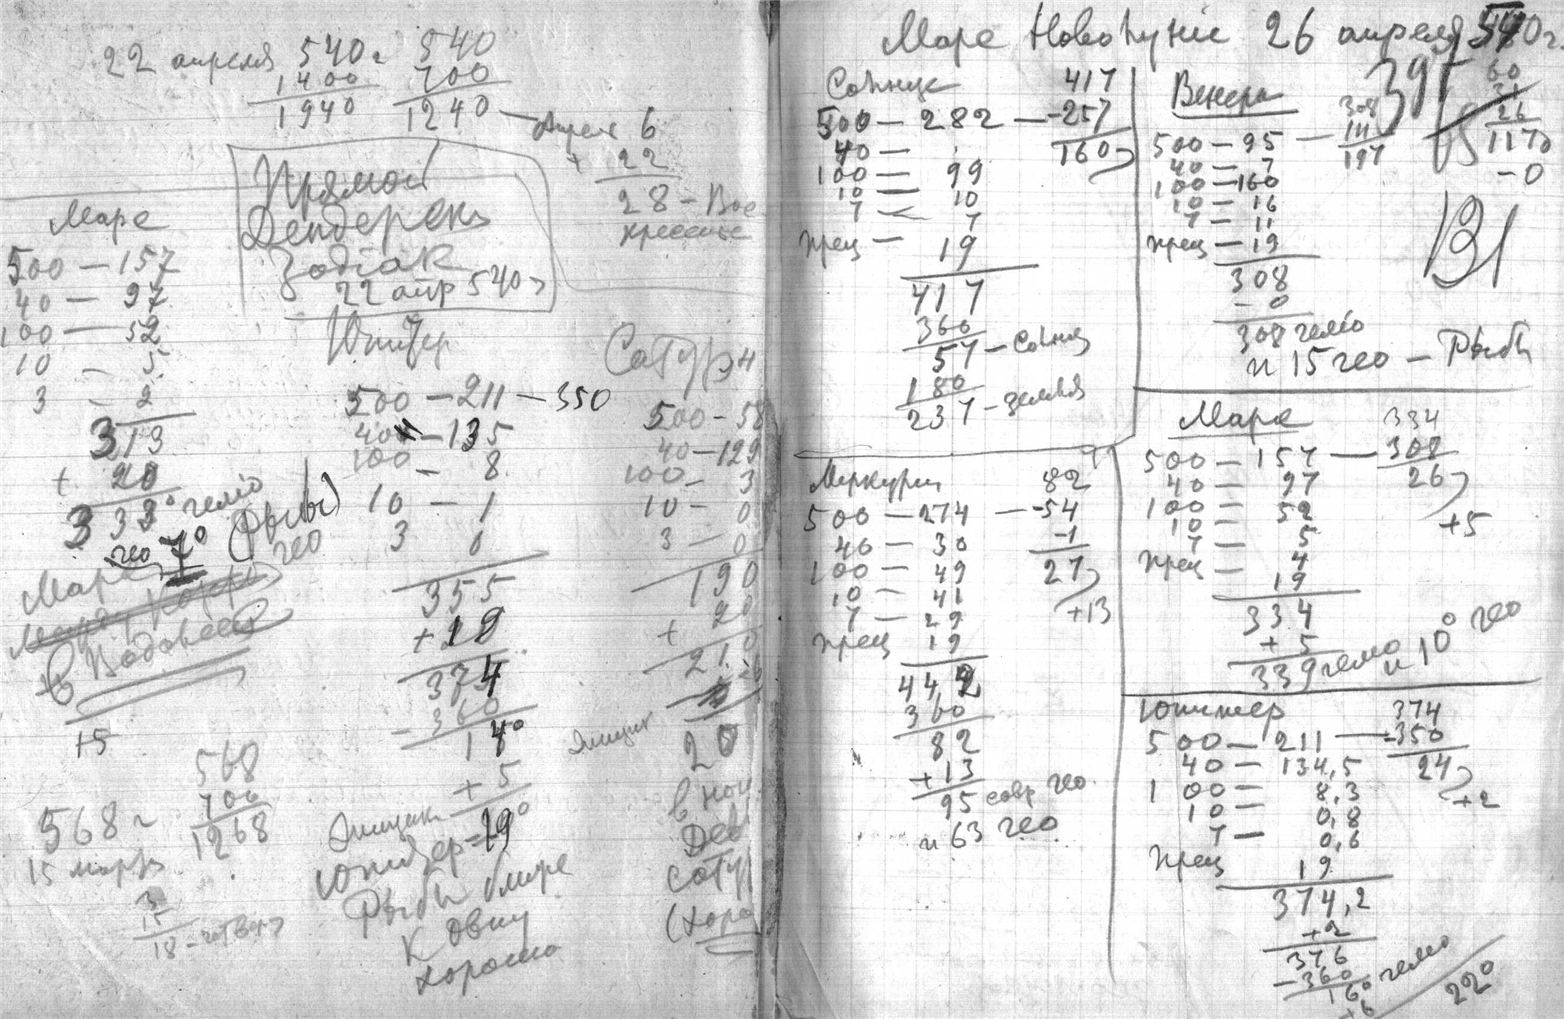 22 апреля 540 г 540
1400 700
1940 1240 — апреля 6
+ 22
28 — Вос
кресенье
Прямой
Дендерск
Zodiак
22 апр 540 г
Марс
500 — 157
40 — 97
100 — 52
10 — 5
3 — 2
313
+ 20
333° гелио
гео 7° (Рыбы)
гео
Марс
в Водолее
+5
568 г
15 марта
568
700
1268
3
15
18 — четверг
Юпитер
500 — 211 — 350
40 — 135
100 — 8
10 — 1
3 0
355
+ 19
374
- 360
14°
+ 5
Юпитер = 19°
Рыбы ближе
к Овну
хорошо
Сатурн
500 - 58
40 — 129
100 — 3
10 — 0
3 — 0
190
+ 20
210
20
в ной
Дев
сатур
(хоро
Марс Новолуние 26 апреля 540 г.
395
60
31
26
1170
- 0
Солнце 417
500 — 282 — -257
40 — 160
100 — 99
10 — 10
7 — 7
прец — 19
417
360
57 — Солнц
180
237 — земля
Венера
500 — 95 — 308
40 — 7 111
100 — 160 197
10 — 16
7 — 11
прец — 19
308
- 0
308 гелио
и 15 гео — Рыбы
Меркурий 82
500 — 274 — -54
40 — 30 -1
100 — 49 27
10 — 41 +13
7 — 29
прец 19
442
360
82
+ 13
95 совр гео
и 63 гео
Марс 334
500 — 157 — 308
40 — 97 26
100 — 52 +5
10 — 5
7 — 4
прец — 19
334
+ 5
339 гелио и 10° гео
Юпитер 374
500 — 211 — -350
40 — 134,5 24
100 — 8,3 +2
10 — 0,8
7 — 0,6
прец 19
374,2
+2
376
- 360
16° гелио
+6
22°